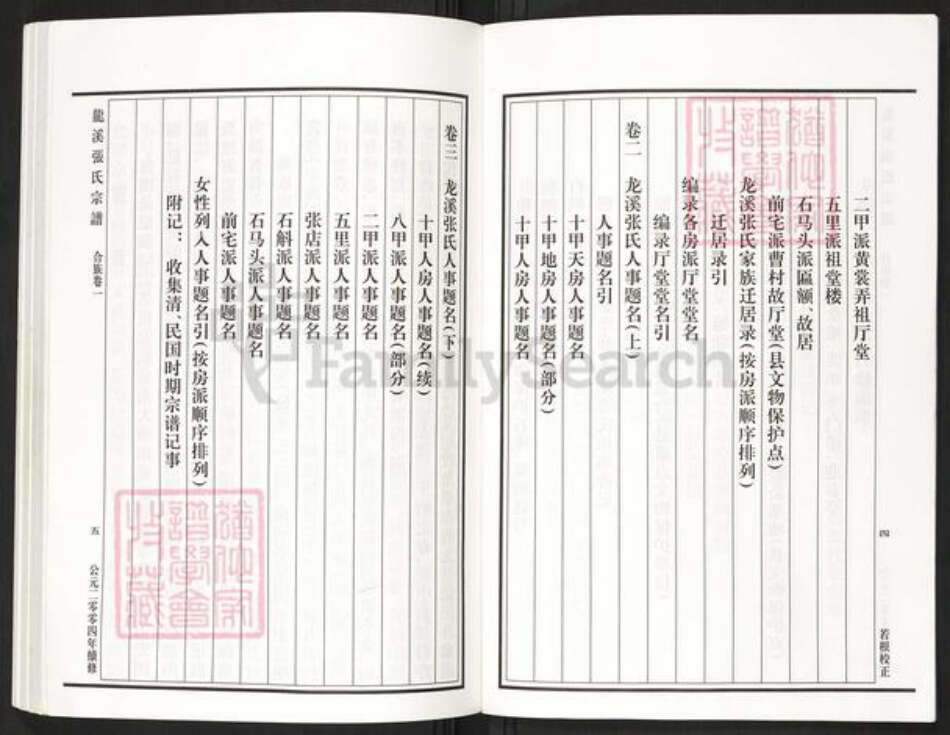 二甲派黄裳弄祖厅堂
五里派祖堂楼
石马头派匾额、故居
前宅派曹村故厅堂(县文物保护点)
龙溪张氏家族迁居录(按房派顺序排列)
迁居录引
编录各房派厅堂堂名
编录厅堂堂名引
卷二 龙溪张氏人事题名(上)
人事题名引
十甲天房人事题名
十甲地房人事题名(部分)
十甲人房人事题名
四
若根校正
卷三 龙溪张氏人事题名(下)
十甲人房人事题名(续)
八甲派人事题名(部分)
二甲派人事题名
五里派人事题名
张店派人事题名
石斛派人事题名
石马头派人事题名
前宅派人事题名
女性列入人事题名引(按房派顺序排列)
附记: 收集清、民国时期宗谱记事
龍溪張氏宗譜 合族卷一
五
公元二零零四年續修
FamilySearch